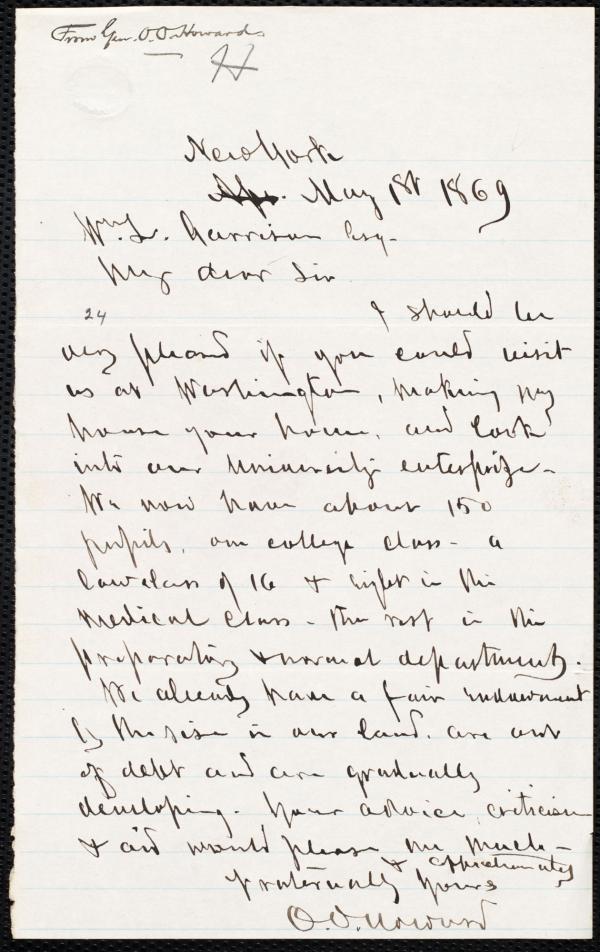 From Gen. O. O. Howard
H
New York
Apr. May 1st 1869
Wm. L. Garrison Esq.
My dear Sir
24
I should be
very pleased if you could visit
us at Washington, making my
house your home, and look
into our University enterprize -
We now have about 150
pupils, one college class - a
law class of 16 & eight in the
medical class - the rest in the
preparatory & normal departments.
We already have a fair endowment
by the rise in our land. are out
of debt and are gradually
developing. Your advice, criticism
& aid would please me much -
fraternally & affectionately
Yours
O. O. Howard